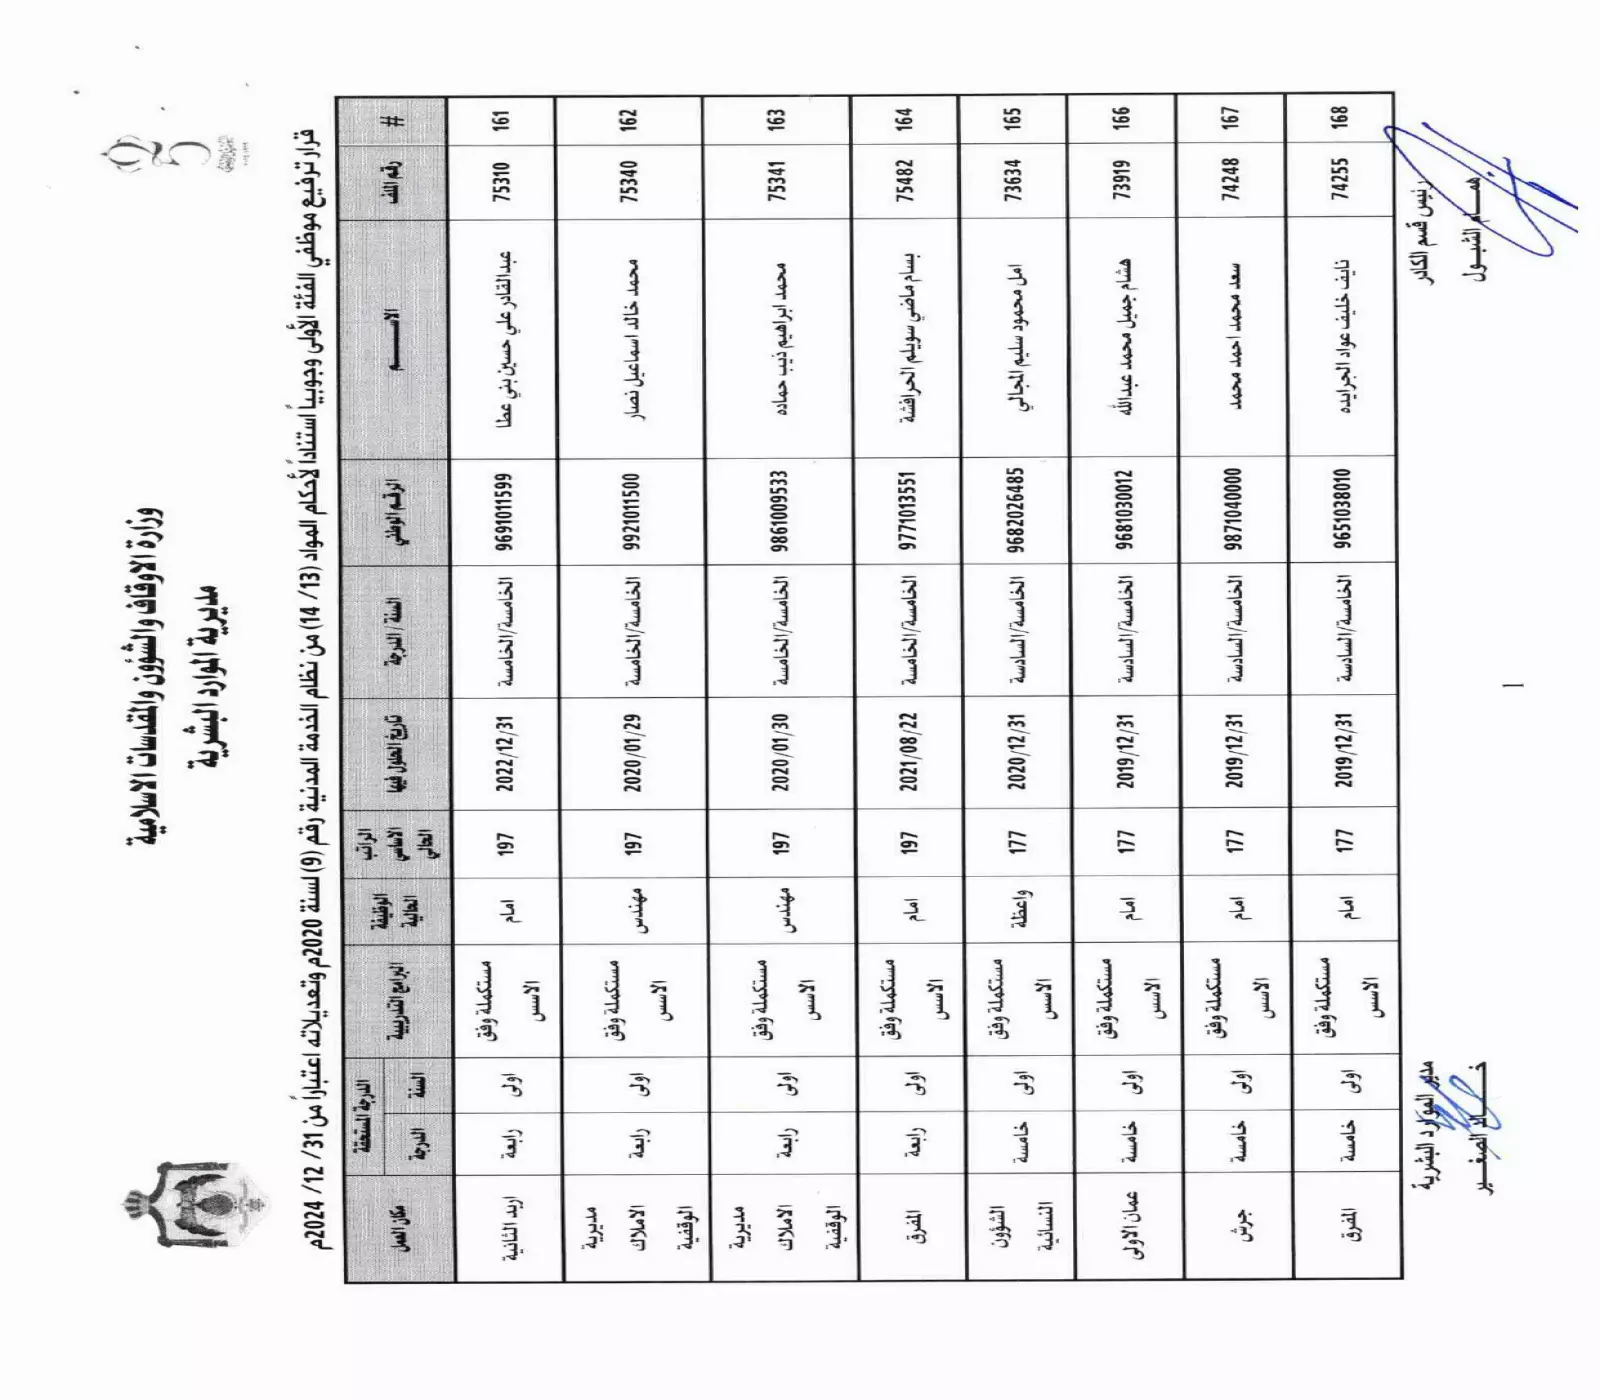 وزارة الاوقاف والشؤون والمقدسات الاسلامية
مديرية الموارد البشرية
قرار ترفيع موظفي الفئة الأولى وجوبياً استناداً لأحكام المواد (13/ 14) من نظام الخدمة المدنية رقم (9) لسنة 2020م وتعديلاته اعتباراً من 31/ 12/ 2024م
# رقم الملف الاســـــم الرقم الوطني السنة / الدرجة تاريخ الحلول فيها الراتب الاساسي الحالي الوظيفة الحالية البرامج التدريبية الدرجة المستحقة مكان العمل
السنة الدرجة
161 75310 عبدالقادر علي حسين بني عطا 9691011599 الخامسة/الخامسة 2022/12/31 197 امام مستكملة وفق الاسس اولى رابعة اربد الثانية
162 75340 محمد خالد اسماعيل نصار 9921011500 الخامسة/الخامسة 2020/01/29 197 مهندس مستكملة وفق الاسس اولى رابعة مديرية الاملاك الوقفية
163 75341 محمد ابراهيم ذيب حماده 9861009533 الخامسة/الخامسة 2020/01/30 197 مهندس مستكملة وفق الاسس اولى رابعة مديرية الاملاك الوقفية
164 75482 بسام ماضي سويلم الحرافشة 9771013551 الخامسة/الخامسة 2021/08/22 197 امام مستكملة وفق الاسس اولى رابعة المفرق
165 73634 امل محمود سليم المجالي 9682026485 الخامسة/السادسة 2020/12/31 177 واعظة مستكملة وفق الاسس اولى خامسة الشؤون النسائية
166 73919 هشام جميل محمد عبدالله 9681030012 الخامسة/السادسة 2019/12/31 177 امام مستكملة وفق الاسس اولى خامسة عمان الاولى
167 74248 سعد محمد احمد محمد 9871040000 الخامسة/السادسة 2019/12/31 177 امام مستكملة وفق الاسس اولى خامسة جرش
168 74255 نايف خليف عواد الجرايده 9651038010 الخامسة/السادسة 2019/12/31 177 امام مستكملة وفق الاسس اولى خامسة المفرق
رئيس قسم الكادر
همـــام الشبـــول
مدير الموارد البشرية
خـــــالد الصغـــير